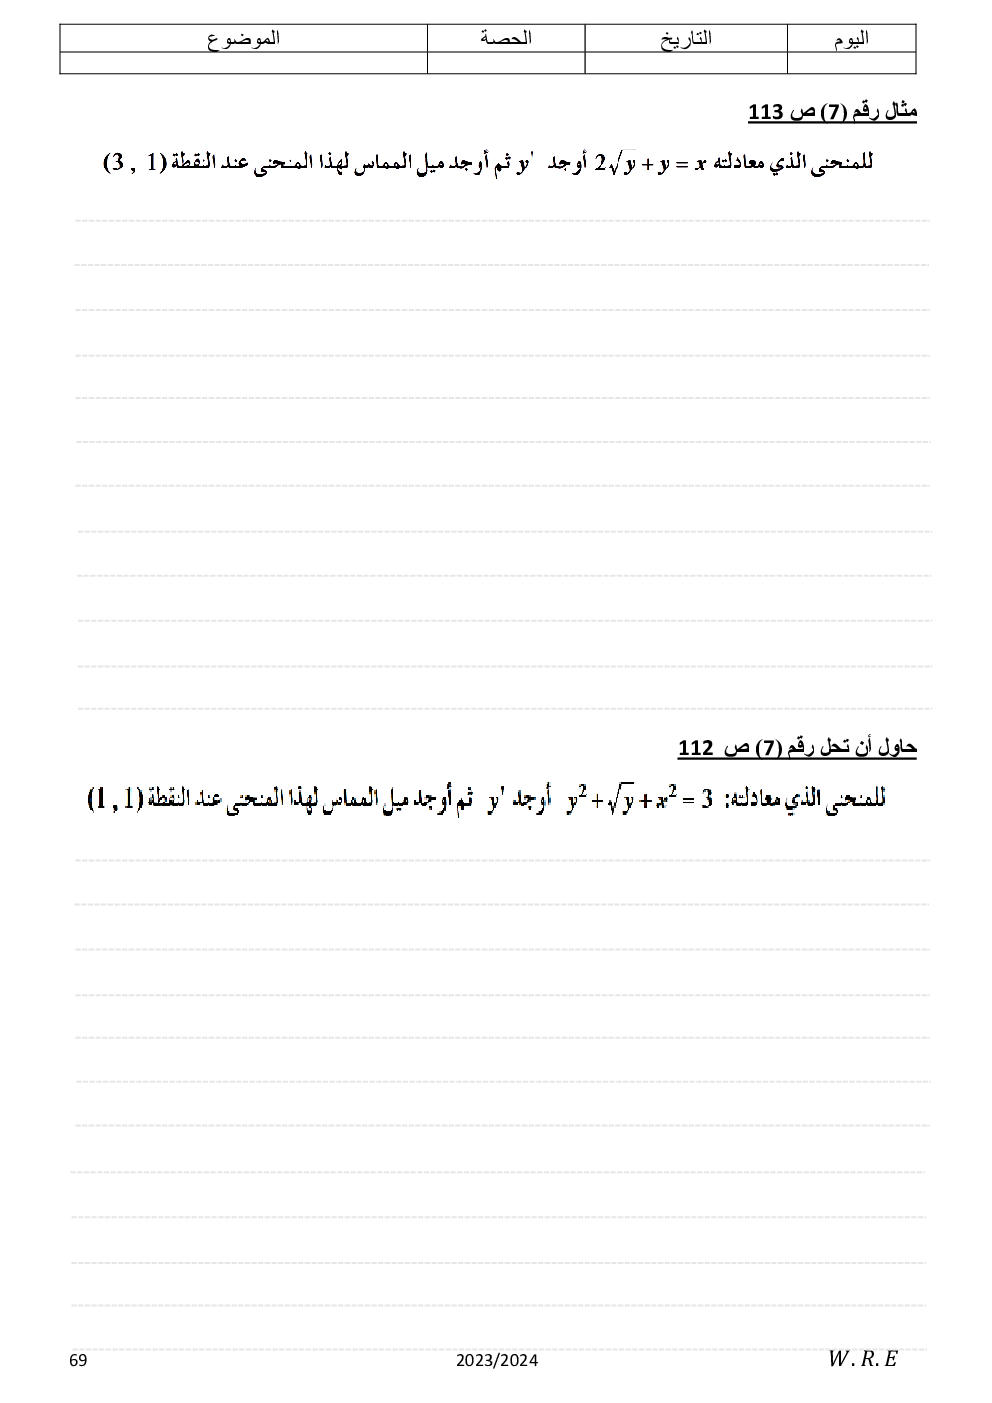 اليوم التاريخ الحصة الموضوع
مثال رقم (7) ص 113
للمنحنى الذي معادلته 2√y + y = x أوجد y' ثم أوجد ميل المماس لهذا المنحنى عند النقطة (3 , 1)
حاول أن تحل رقم (7) ص 112
للمنحنى الذي معادلته: y² + √y + x² = 3 أوجد y' ثم أوجد ميل المماس لهذا المنحنى عند النقطة (1 , 1)
69 2023/2024 W . R . E